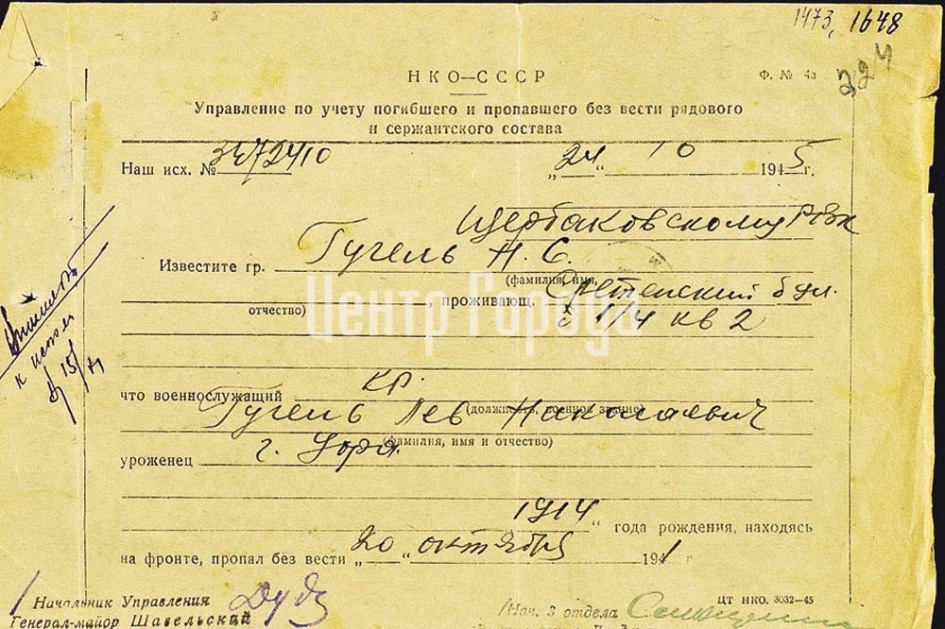 1473, 1648
224
НКО—СССР
Ф. № 4а
Управление по учету погибшего и пропавшего без вести рядового
и сержантского состава
Наш исх. № 24 10 1945 г.
Щербаковскому РВК
Известите гр. Гугель Н. С.
(фамилия, имя,
отчество) , проживающ. Сретенский бул.
д 1/4 кв 2
Центр Города
что военнослужащий кр.
(должность, военное звание)
Гугель Лев Николаевич
(фамилия, имя и отчество)
уроженец г.
1914 года рождения, находясь
на фронте, пропал без вести „20 „ октября 1941 г
Начальник Управления
Генерал-майор Шавельский
Нач. 3 отдела
ЦТ НКО. 3032—45